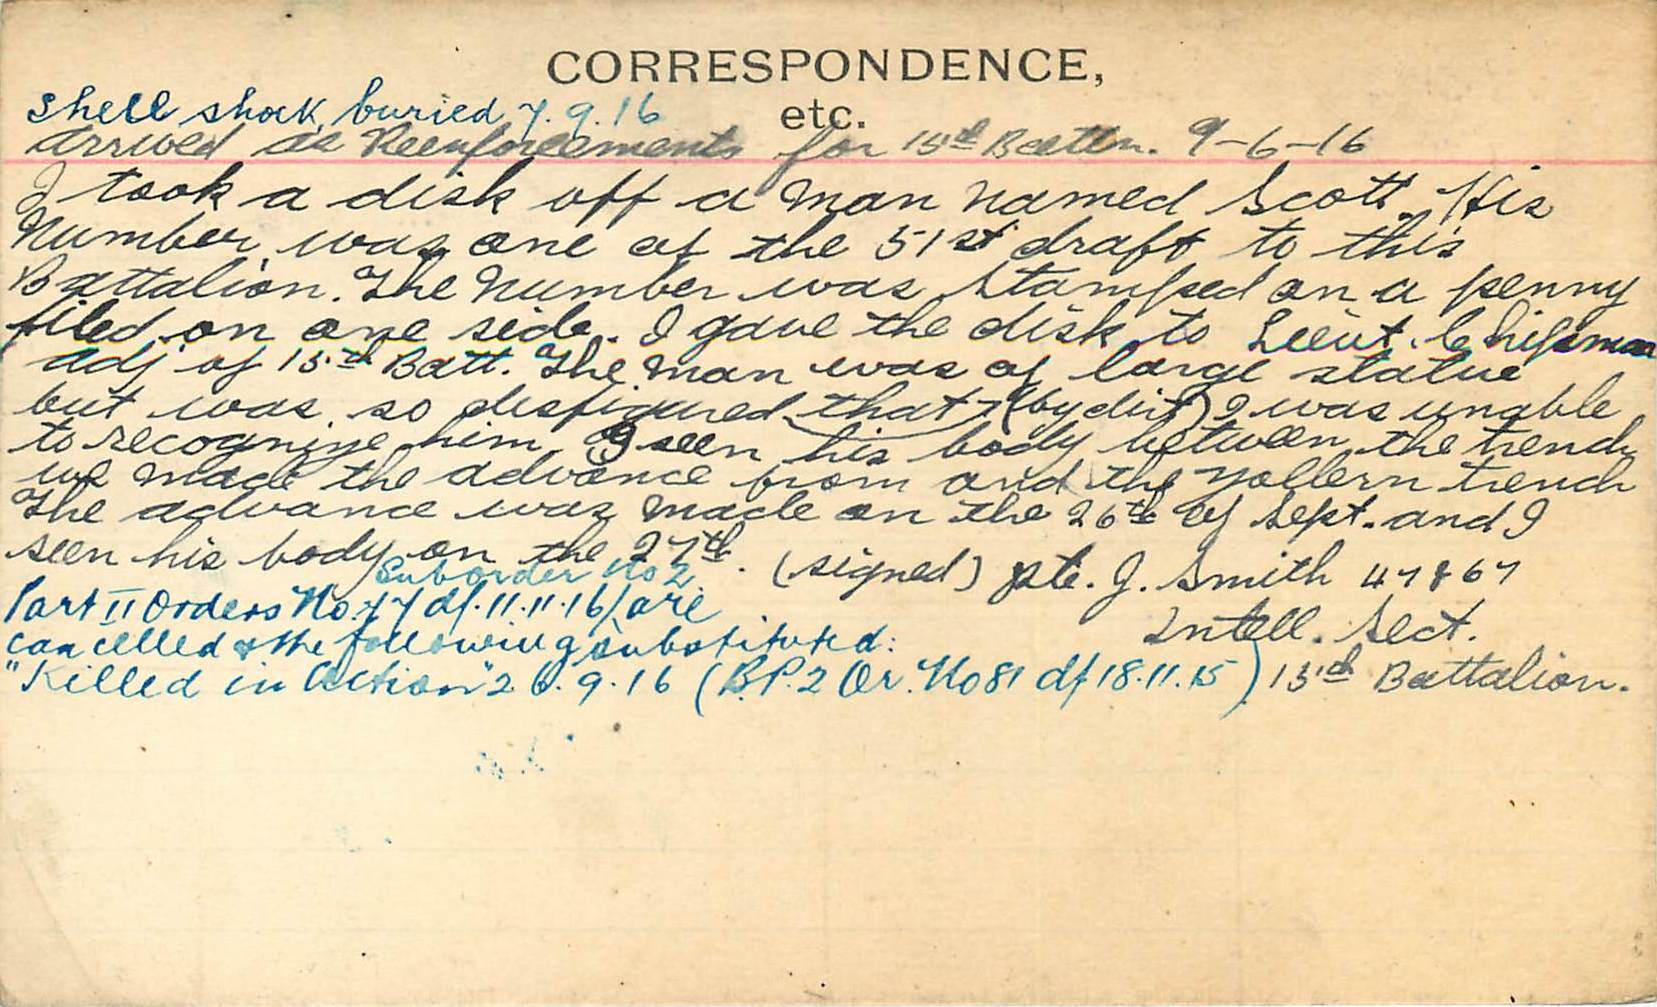 CORRESPONDENCE,
etc.
Shell shock, buried 7.9.16
Arrived as Reenforcements for 15th Battn. 9-6-16
I took a disk off a man named Scott. His
Number was one of the 51st draft to this
Battalion. The Number was stamped on a penny
filed on one side. I gave the disk to Lieut. Chipman
adj of 15th Batt. The man was of large statue
but was so desfigured that (by dirt) I was unable
to recognize him. I seen his body between the trench
we made the advance from and the Zollern trench
The advance was made on the 26th of Sept. and I
seen his body on the 27th. (signed) pte. J. Smith 47867
Suborder No 2.
Part II Orders No. 77 df. 11.11.16/are
Intell. Sect.
cancelled & the following substituted:
"Killed in Action" 26.9.16 (B.P.2 Or. No 81 df 18.11.15) 15th Battalion.